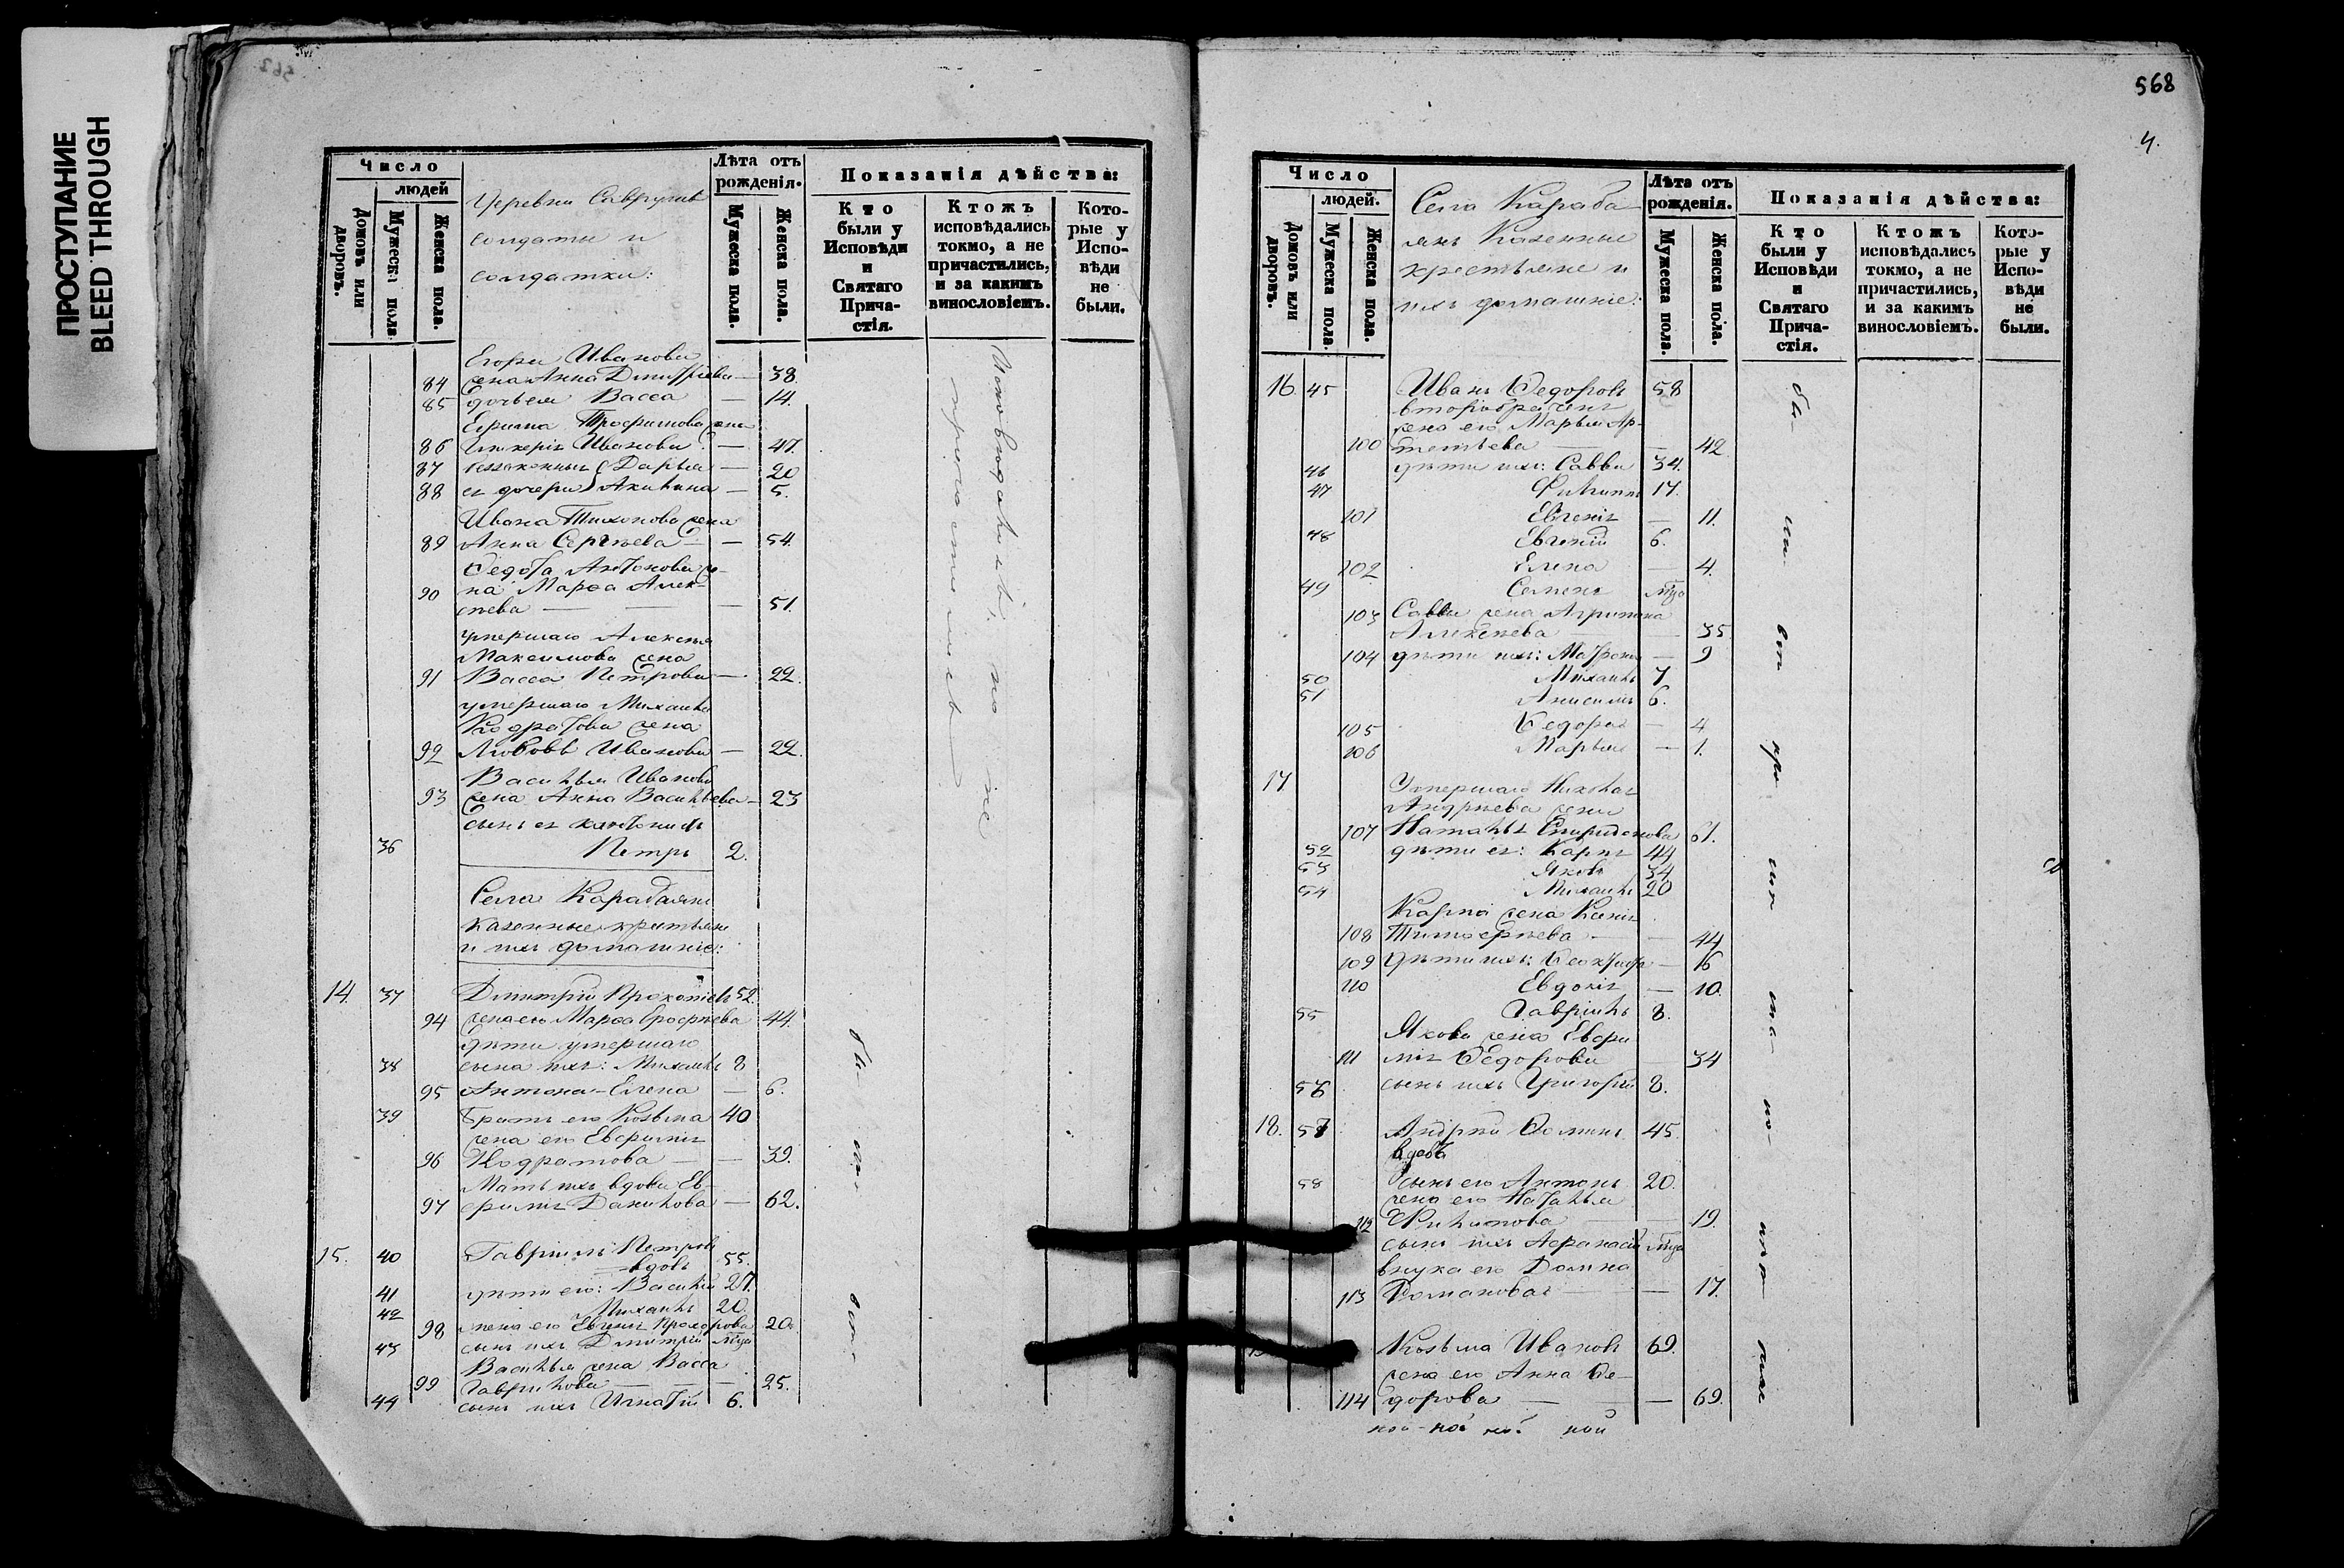 ПРОСТУПАНИЕ
BLEED THROUGH
Число
людей
Домовъ или дворовъ.
Мужеска пола
Женска пола.
Деревни Саврушъ
солдаты и
солдатки:
Лѣта отъ
рожденія.
Мужеска пола.
Женска пола.
Показанія дѣйства:
Кто
были у
Исповѣди
и
Святаго
Прича-
стія.
Ктожъ
исповѣдались
токмо, а не
причастились,
и за какимъ
винословіемъ.
Кото-
рые у
Испо-
вѣди
не
были.
Егора Иванова
84 жена Анна Дмитріева — 38.
85 дочь ея Васса — 14.
Ефима Трофимова жена
86 Гликерія Иванова — 47.
87 незаконныя Дарья — 20
88 ея дочери Акилина — 5.
Ивана Тихонова жена
89 Анна Сергѣева — 54.
Ѳедота Антонова же-
90 на Марѳа Алек-
сѣева — 51.
умершаго Алексѣя
Максимова жена
91 Васса Петрова — 22.
умершаго Михаила
Кодратова жена
92 Любовь Иванова — 22.
Василья Иванова
93 жена Анна Васильева — 23
сынъ ея кантонистъ
36 Петръ 2.
Исповѣдались, но не
причастились
Села Карабаянъ
казенные крестьяне
и ихъ домашніе:
14. 37 Димитрій Прокопіевъ 52.
94 жена его Марѳа Ерофѣева 44.
Дѣти умершаго
38 сына ихъ: Михаилъ 8
95 Антона – Елена — 6.
39 Братъ его Козьма 40
жена его Евфимія
96 Кодратова — 39.
Мать ихъ вдова Ев-
97 фимія Данилова — 62.
15. 40 Гавріилъ Петровъ 55.
вдовъ
41 дѣти его: Василій 27.
42 Михаилъ 20.
98 жена его Евгенія Прохорова 20.
43 сынъ ихъ Дмитрій
Василья жена Васса
99 Гаврилова — 25.
44 сынъ ихъ Игнатій 6.
бы-
568
4.
Число
людей.
Домовъ или дворовъ.
Мужеска пола.
Женска пола.
Села Караба-
янъ Казенные
крестьяне и
ихъ домашніе:
Лѣта отъ
рожденія.
Мужеска пола.
Женска пола.
Показанія дѣйства:
Кто
были у
Исповѣди
и
Святаго
Прича-
стія.
Ктожъ
исповѣдались
токмо, а не
причастились,
и за какимъ
винословіемъ.
Кото-
рые у
Испо-
вѣди
не
были.
16. 45 Иванъ Ѳедоровъ 58
второбраченъ
жена его Марья Ар-
100 темьева — 42.
46 дѣти ихъ: Савва 34.
47 Филиппъ 17.
101 Евгенія — 11.
48 Евгеній 6.
102 Елена — 4.
49 Семенъ
103 Саввы жена Агрипина
Алексѣева — 35.
104 дѣти ихъ: Матрона — 9
50 Михаилъ 7
51 Анисимъ 6.
105 Ѳедора — 4
106 Марья — 1.
17 Умершаго Николая
Андрѣева жена
107 Наталья Спиридонова 61.
52 дѣти ея: Карпъ 44
53 Яковъ 34
54 Михаилъ 20
Карпа жена Ксенія
108 Тимофѣева — 44
109 Дѣти ихъ: — 16
110 Евдокія — 10.
55 Гавріилъ 8.
Якова жена Евфи
111 мія Ѳедорова — 34
56 сынъ ихъ Григорій 8.
18. 57 Андрей Ѳоминъ 45.
вдовъ
58 сынъ его Антонъ 20.
жена его Наталья
112 Филипова — 19.
сынъ ихъ Афанасій
внука его Домна
113 Романова — 17.
Козьма Ивановъ 69.
жена его Анна Ѳе-
114 дорова — 69.
бы-